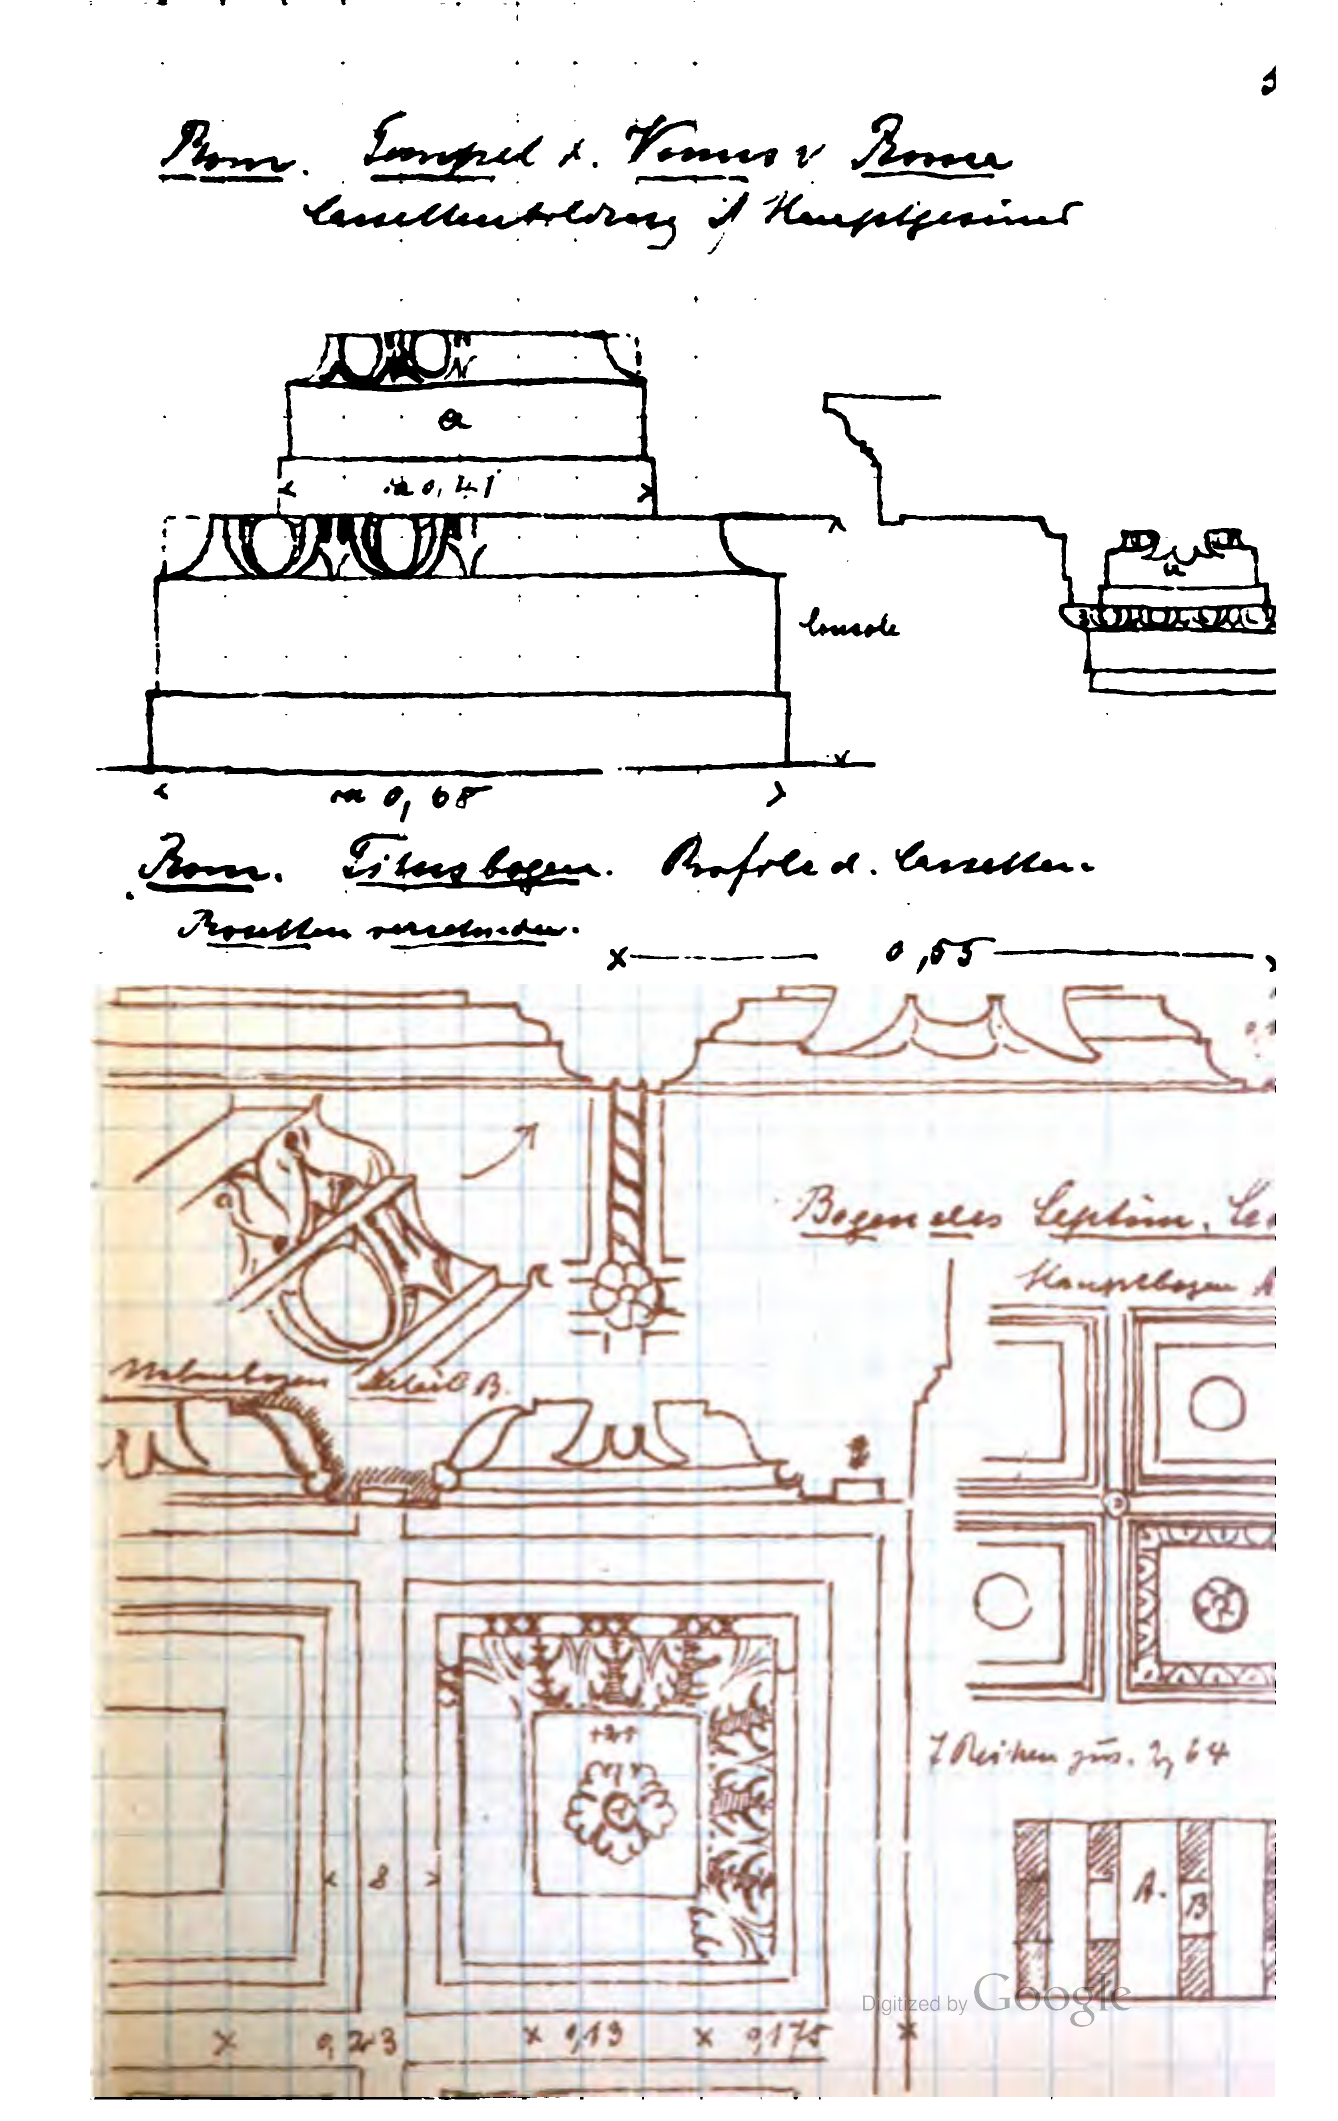 Rom. Tempel d. Venus u Roma
Cassettenbildung i/ Hauptgesims
a
ca 0,41
a
Console
ca 0,68
Rom. Titusbogen. Profile d. Cassetten.
Rosetten verschieden.
0,55
Bogen des Septim. Se
Hauptbogen A
Nebenbogen Detail B.
7 Reihen zus. 2,64
8
A.
B
0,23
0,13
0,175
Digitized by Google